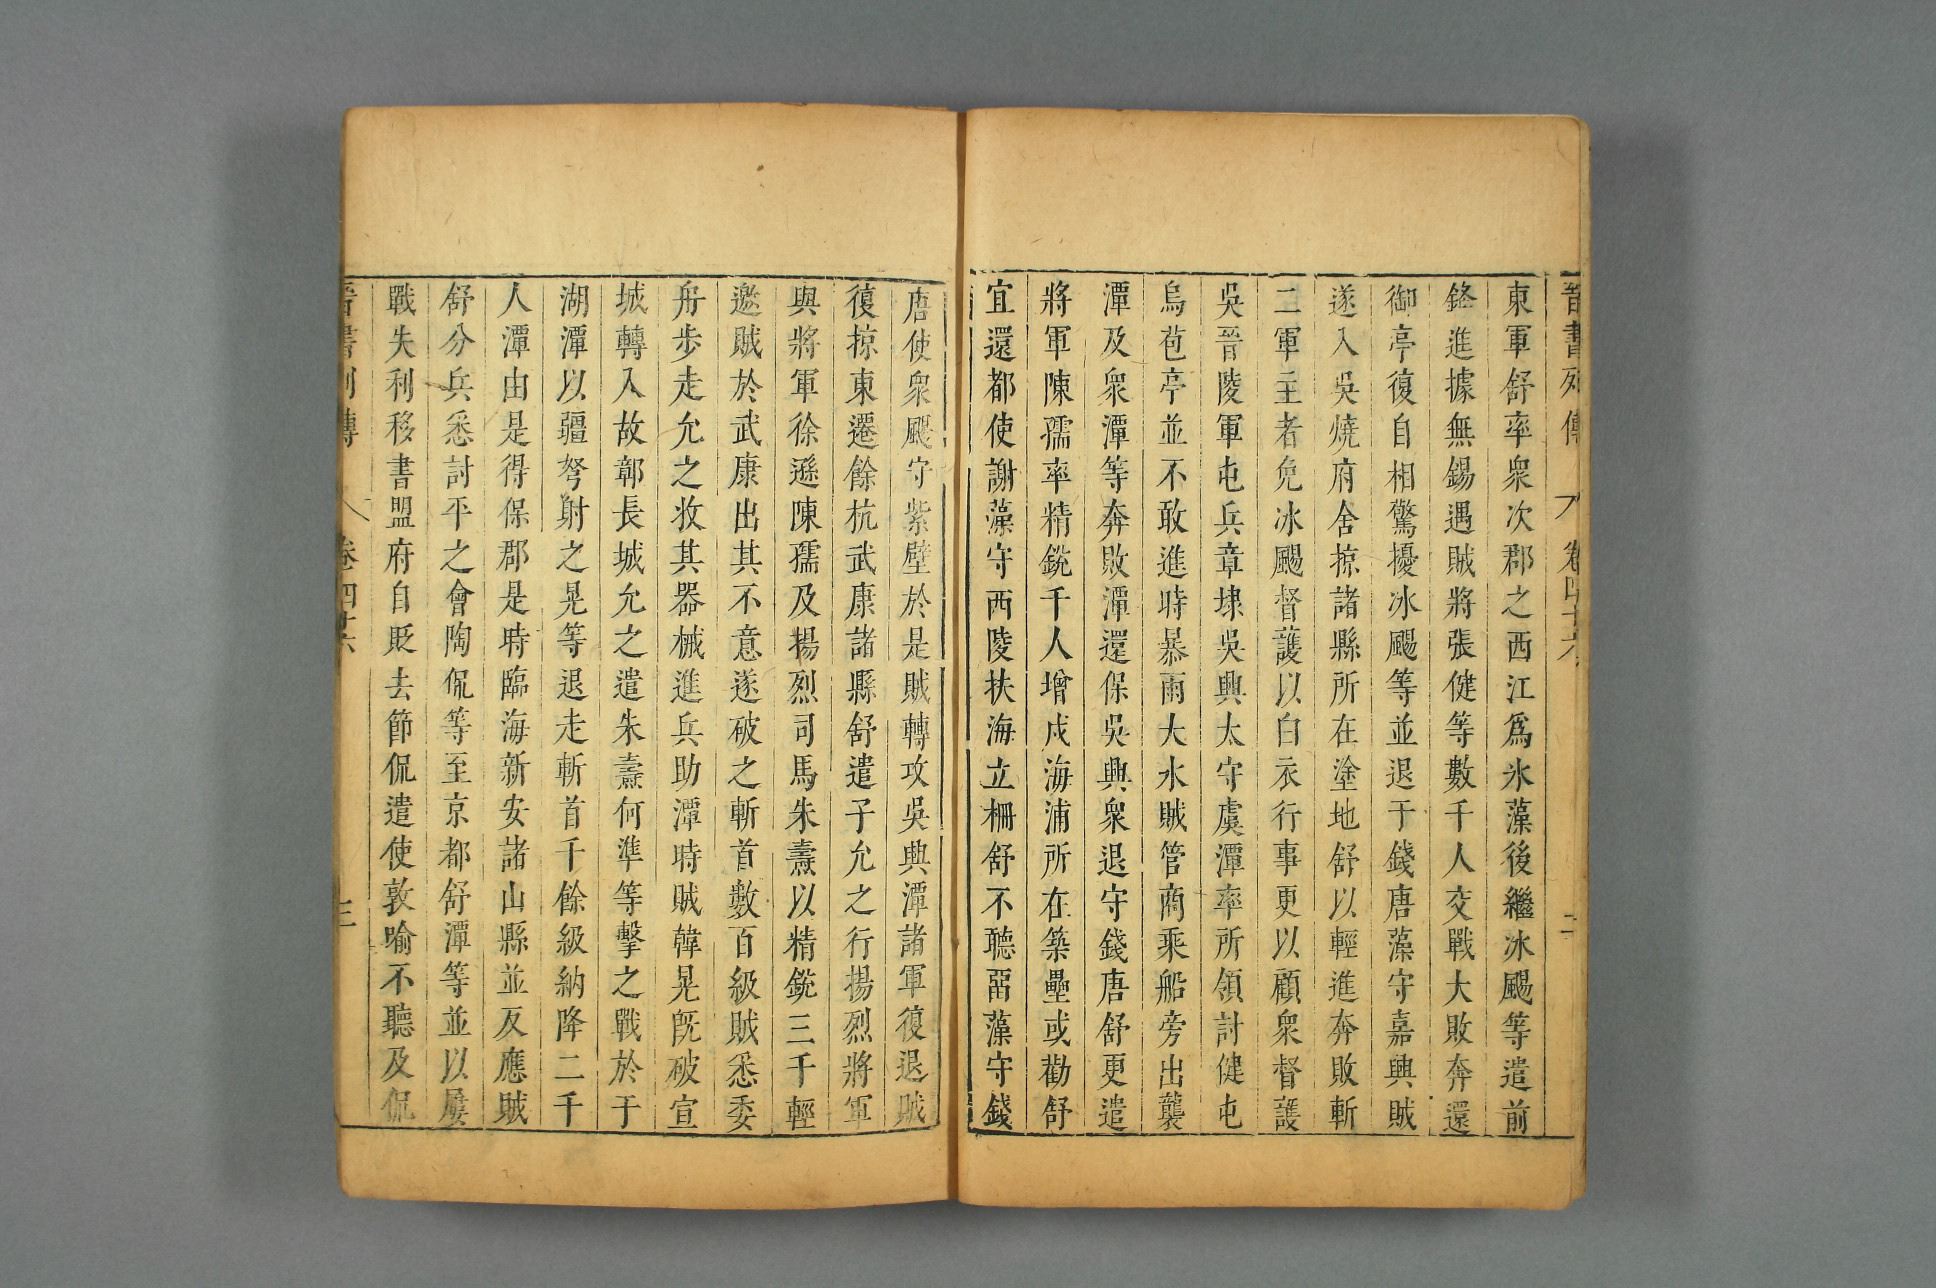 晉書列傳 卷四十六 二
東軍舒率衆次郡之西江爲氷藻後繼冰颺等遣前
鋒進據無錫遇賊將張健等數千人交戰大敗奔還
御亭復自相驚擾冰颺等並退于錢唐藻守嘉興賊
遂入吳燒府舍掠諸縣所在塗地舒以輕進奔敗斬
二軍主者免冰颺督護以白衣行事更以顧衆督護
吳晉陵軍屯兵章埭吳興太守虞潭率所領討健屯
烏苞亭並不敢進時暴雨大水賊管商乘船旁出襲
潭及衆潭等奔敗潭還保吳興衆退守錢唐舒更遣
將軍陳孺率精銳千人增戍海浦所在築壘或勸舒
宜還都使謝藻守西陵扶海立柵舒不聽畱藻守錢
唐使衆颺守紫壁於是賊轉攻吳興潭諸軍復退賊
復掠東遷餘杭武康諸縣舒遣子允之行揚烈將軍
與將軍徐遜陳孺及揚烈司馬朱燾以精銳三千輕
邀賊於武康出其不意遂破之斬首數百級賊悉委
舟步走允之收其器械進兵助潭時賊韓晃旣破宣
城轉入故鄣長城允之遣朱燾何準等擊之戰於于
湖潭以彊弩射之晃等退走斬首千餘級納降二千
人潭由是得保郡是時臨海新安諸山縣並反應賊
舒分兵悉討平之會陶侃等至京都舒潭等並以屢
戰失利移書盟府自貶去節侃遣使敦喻不聽及侃
晉書列傳 卷四十六 三